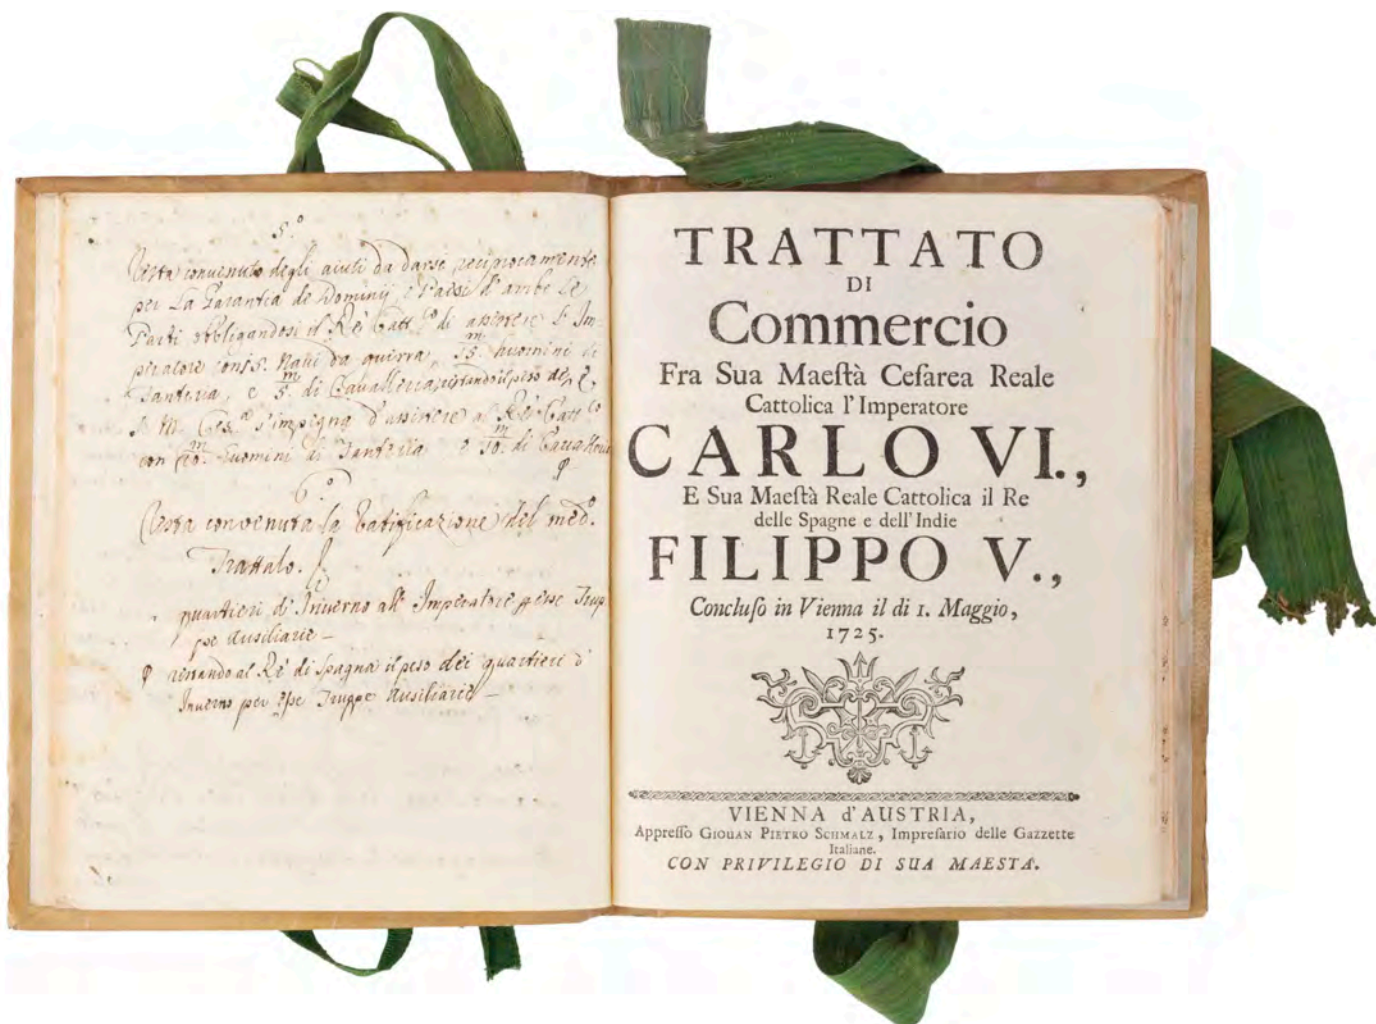 5.º
Resta convenuto degli aiuti da darse reciprocamente
per La Garantia de Dominij, e Paesi d'ambe Le
Parti obbligandosi il Rè Catt.co di assistere L'Im-
peratore con 15. Navi da guerra, 15.m huomini di
Fanteria, e 5.m di Cavalleria, restando il peso de,
S. M. Ces.a s'impegna d'assistere al Rè Catt.co
con 20.m huomini di Fanteria e 10.m di Cavalleria
6.º
Resta convenuta la Ratificazione del med.º
Trattato.
quartieri di Inverno all' Imperatore p esse Trup
pe Ausiliarie –
restando al Rè di Spagna il peso dei quartieri d'
Inverno per esse Truppe Ausiliarie –
TRATTATO
DI
Commercio
Fra Sua Maeſtà Ceſarea Reale
Cattolica l'Imperatore
CARLO VI.,
E Sua Maeſtà Reale Cattolica il Re
delle Spagne e dell'Indie
FILIPPO V.,
Concluſo in Vienna il di 1. Maggio,
1725.
VIENNA d'AUSTRIA,
Appreſſo GIOUAN PIETRO SCHMALZ, Impreſario delle Gazzette
Italiane.
CON PRIVILEGIO DI SUA MAESTA'.